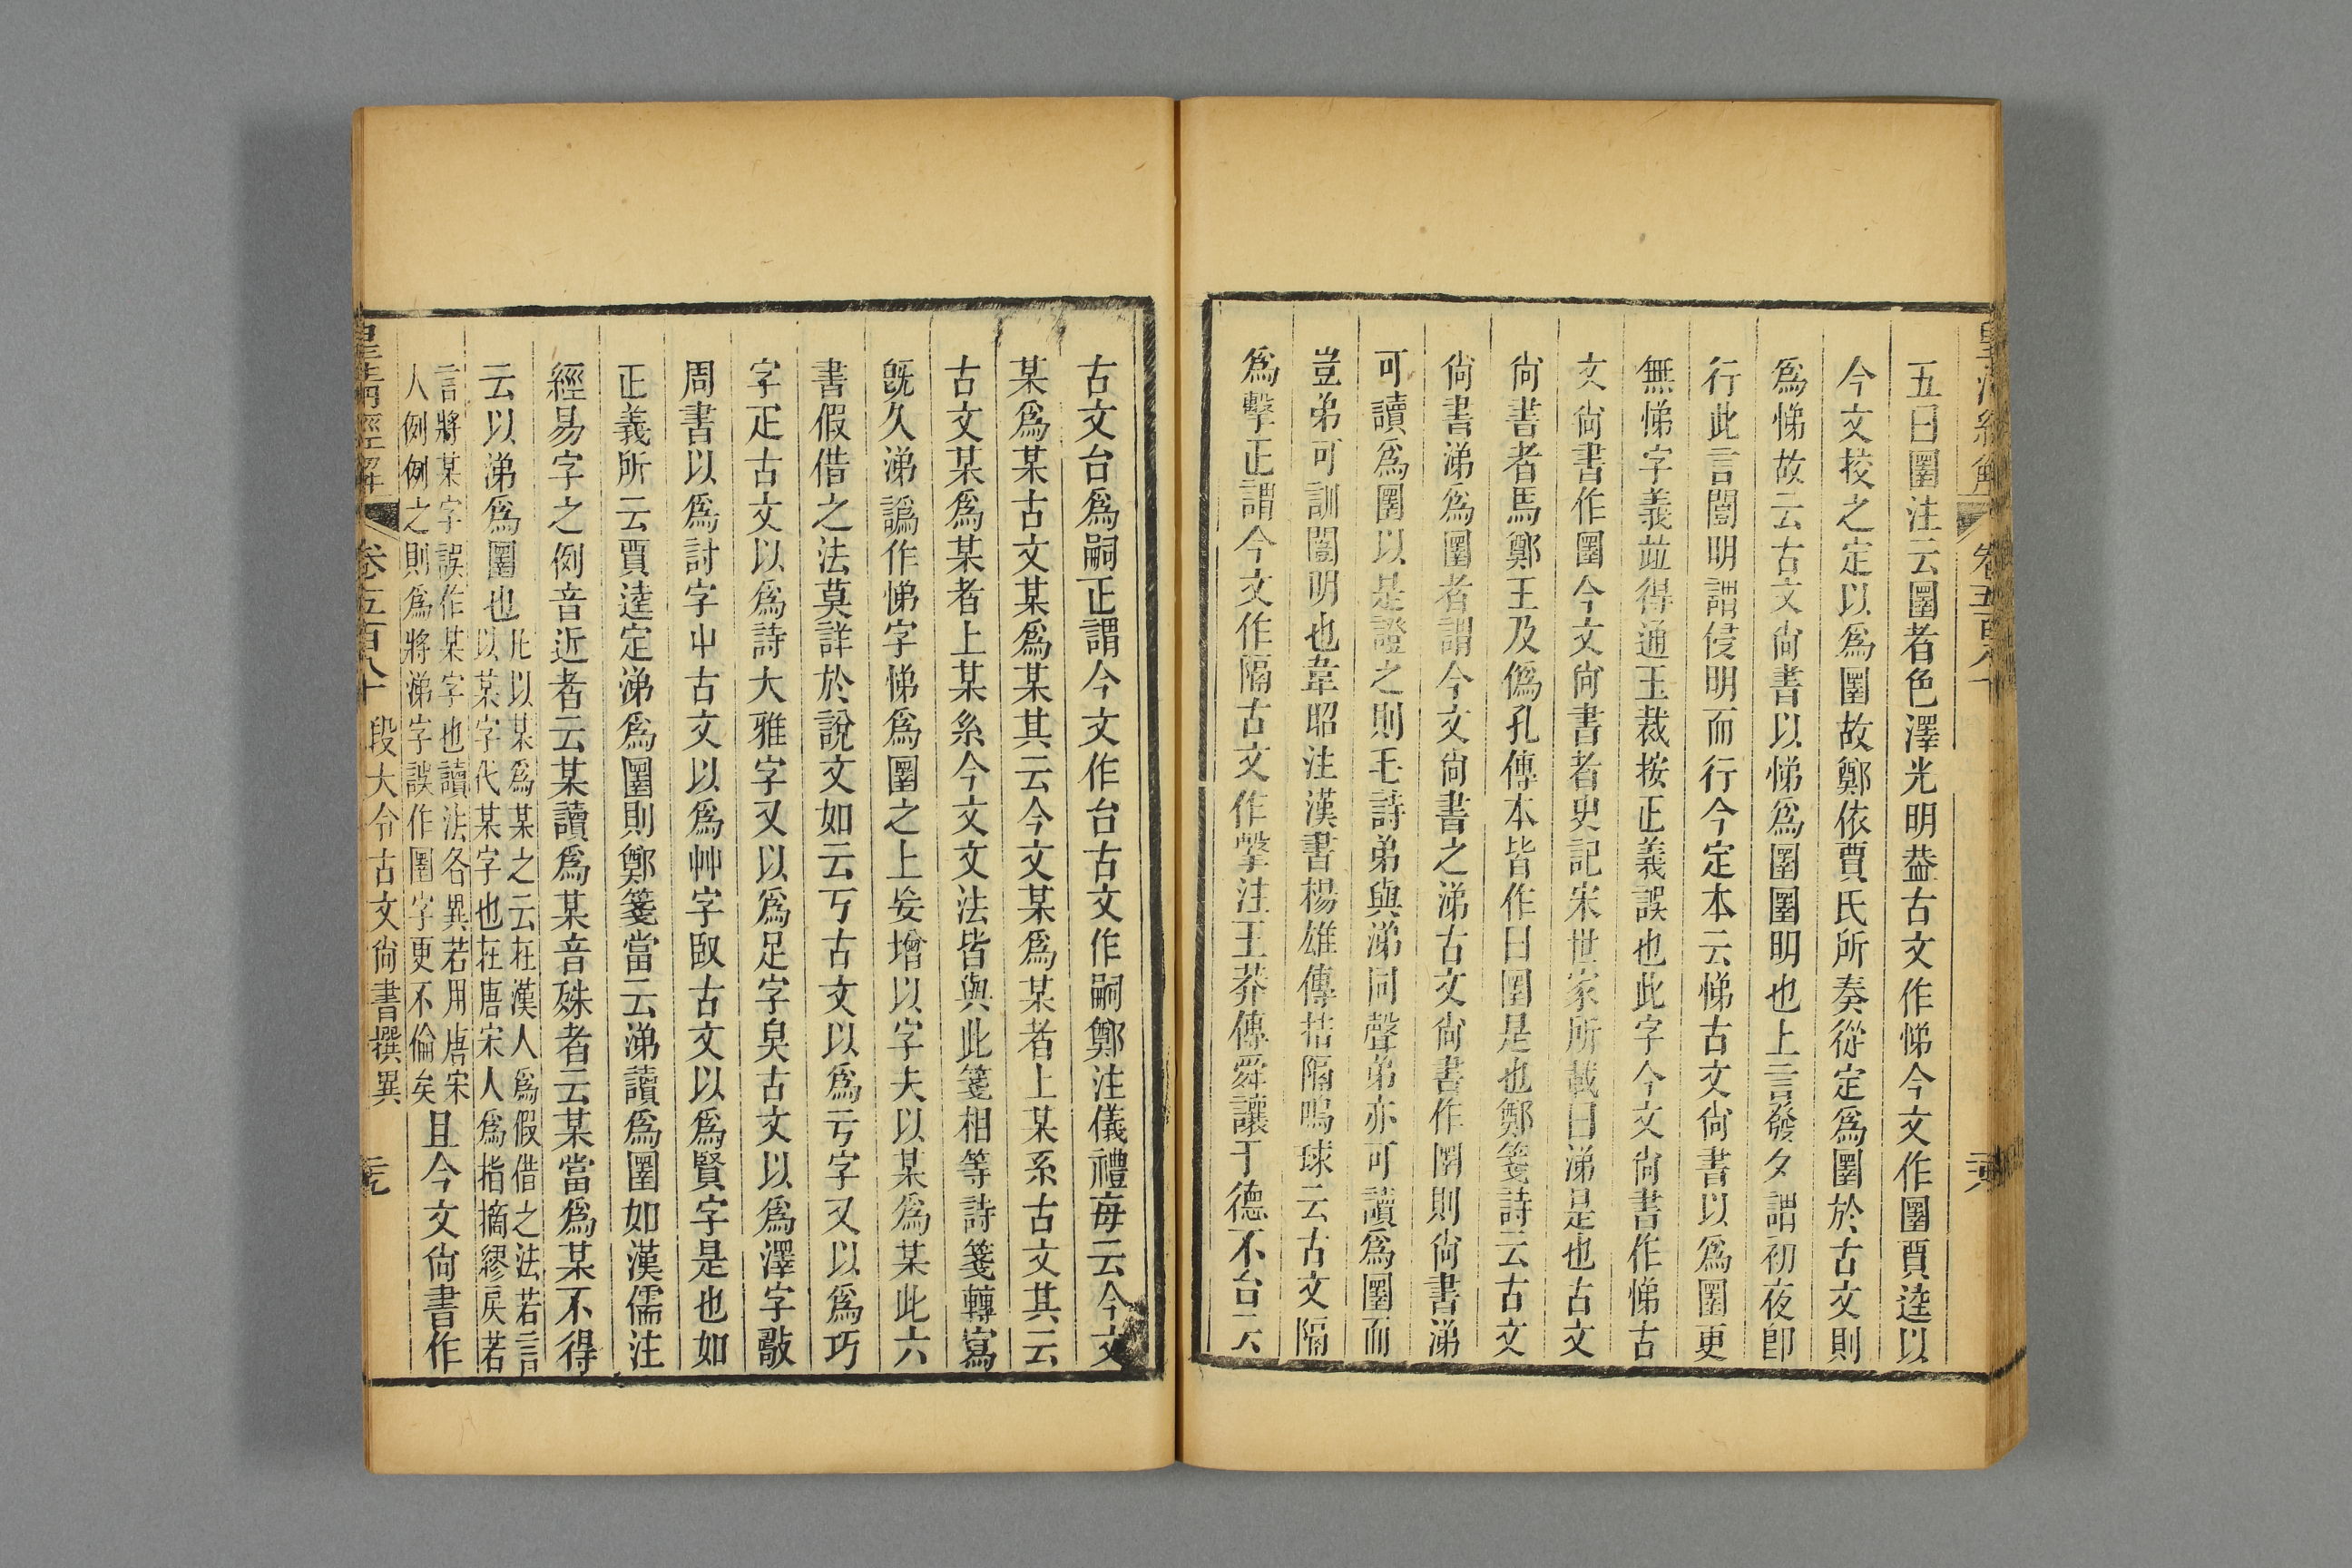 五曰圛注云圛者色澤光明葢古文作悌今文作圛賈逵以
今文挍之定以爲圛故鄭依賈氏所奏從定爲圛於古文則
爲悌故云古文尙書以悌爲圛圛明也上言發夕謂初夜卽
行此言闓明謂侵明而行今定本云悌古文尙書以爲圛更
無悌字義竝得通玉裁按正義誤也此字今文尙書作悌古
文尙書作圛今文尙書者史記宋世家所載曰涕是也古文
尙書者馬鄭王及僞孔傳本皆作曰圛是也鄭箋詩云古文
尙書涕爲圛者謂今文尙書之涕古文尙書作圛則尙書涕
可讀爲圛以是證之則毛詩弟與涕同聲弟亦可讀爲圛而
豈弟可訓闓明也韋昭注漢書楊雄傳拮隔鳴球云古文隔
爲擊正謂今文作隔古文作擊注王莽傳舜讓于德不台云
古文台爲嗣正謂今文作台古文作嗣鄭注儀禮每云今文
某爲某古文某爲某其云今文某爲某者上某系古文其云
古文某爲某者上某系今文文法皆與此箋相等詩箋轉寫
旣久涕譌作悌字悌爲圛之上妄增以字夫以某爲某此六
書假借之法莫詳於說文如云丂古文以爲亏字又以爲巧
字疋古文以爲詩大雅字又以爲足字㚖古文以爲澤字敺
周書以爲討字屮古文以爲艸字臤古文以爲賢字是也如
正義所云賈逵定涕爲圛則鄭箋當云涕讀爲圛如漢儒注
經易字之例音近者云某讀爲某音殊者云某當爲某不得
云以涕爲圛也此以某爲某之云在漢人爲假借之法若言
以某字代某字也在唐宋人爲指摘繆戾若
言將某字誤作某字也讀法各異若用唐宋
人例例之則爲將涕字誤作圛字更不倫矣且今文尙書作
皇清經解 卷五百八十 段大令古文尙書撰異